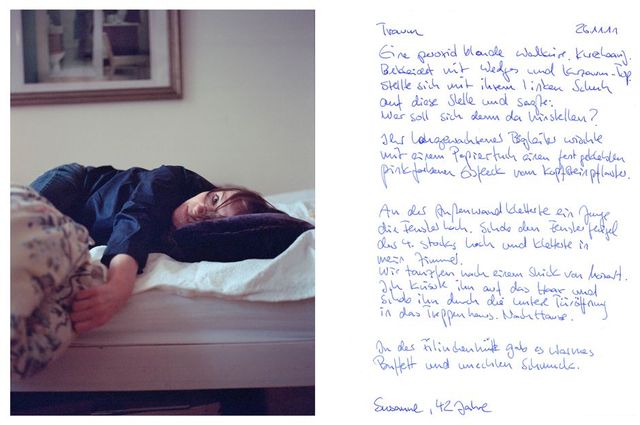 Traum 26.11.11
Eine peroxid blonde Walküre. Kurzhaarig.
Bekleidet mit Wedges und Karzurra-Top
stellte sich mit ihrem linken Schuh
auf diese Stelle und sagte:
Wer soll sich denn da hinstellen?
Ihr langgewachsener Begleiter wischte
mit einem Papiertuch einen fest geklebten
pinkfarbenen Fleck vom Kopfsteinpflaster.
An der Außenwand kletterte ein Junge
die Fenster hoch. Schob den Fensterflügel
des 4. Stocks hoch und kletterte in
mein Zimmer.
Wir tanzten nach einem Stück von Mozart.
Ich küsste ihn auf das Haar und
schob ihn durch die untere Türöffnung
in das Treppenhaus. Nachhause.
In der gab es warmes
Buffett und unechten Schmuck.
Susanne, 42 Jahre